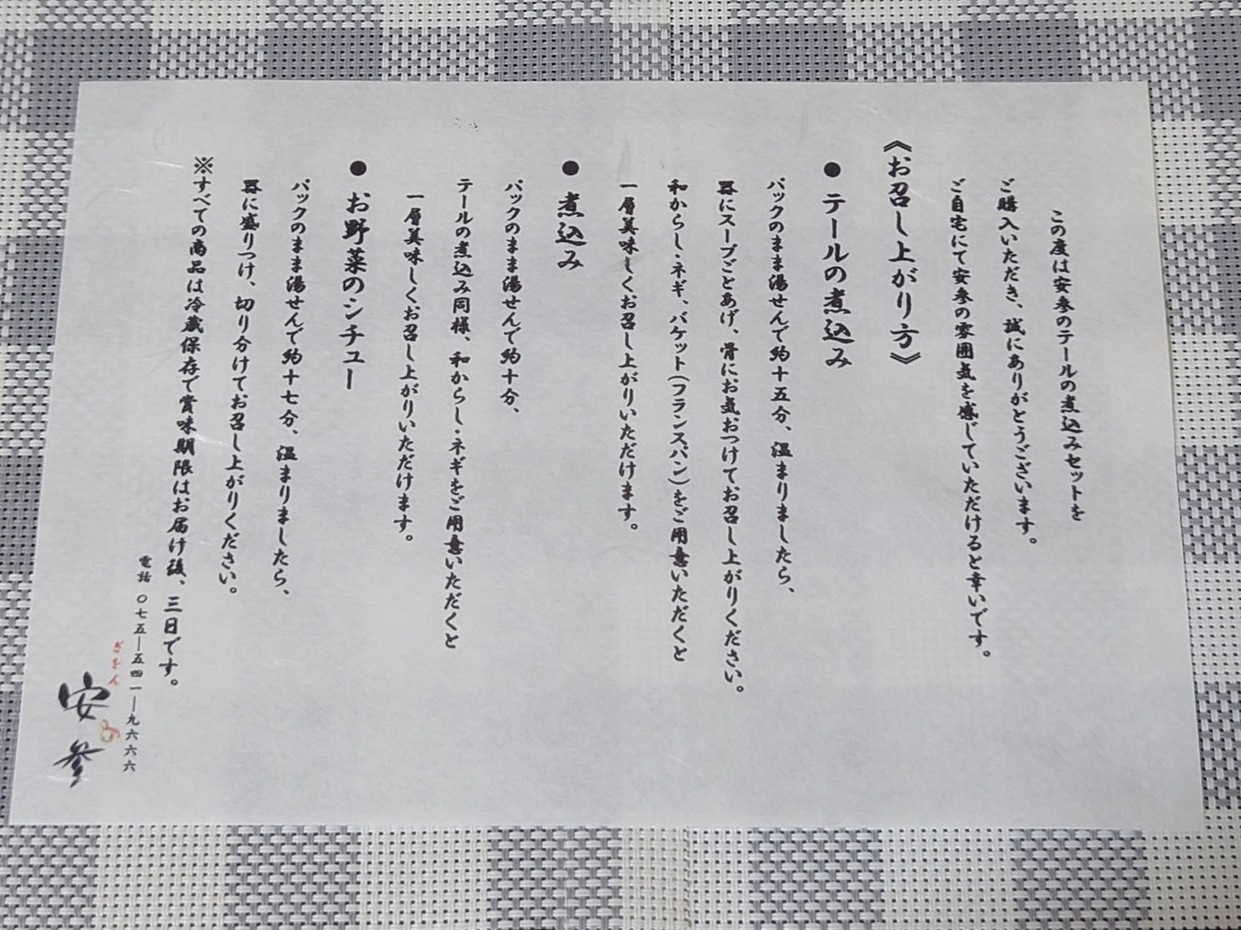 この度は安参のテールの煮込みセットを
ご購入いただき、誠にありがとうございます。
ご自宅にて安参の雰囲気を感じていただけると幸いです。
《お召し上がり方》
●テールの煮込み
パックのまま湯せんで約十五分、温まりましたら、
器にスープごとあげ、骨にお気おつけてお召し上がりください。
和からし・ネギ、バケット(フランスパン)をご用意いただくと
一層美味しくお召し上がりいただけます。
●煮込み
パックのまま湯せんで約十分、
テールの煮込み同様、和からし・ネギをご用意いただくと
一層美味しくお召し上がりいただけます。
●お野菜のシチュー
パックのまま湯せんで約十七分、温まりましたら、
器に盛りつけ、切り分けてお召し上がりください。
※すべての商品は冷蔵保存で賞味期限はお届け後、三日です。
電話 〇七五―五四一―九六六六
ぎをん
安参